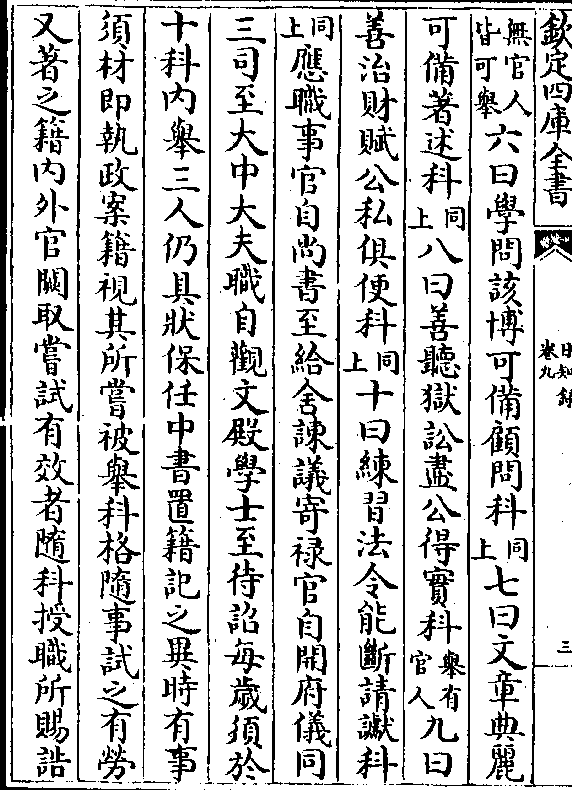 欽定四庫全書
日知錄
卷九
三
無官人皆可舉六曰學問該博可備顧問科同上七曰文章典麗
可備著述科同上八曰善聽獄訟盡公得實科舉有官人九曰
善治財賦公私俱便科同上十曰練習法令能斷請讞科
同上應職事官自尚書至給舍諫議寄禄官自開府儀同
三司至大中大夫職自觀文殿學士至待詔每歲須於
十科內舉三人仍具狀保任中書置籍記之異時有事
須材即執政案籍視其所嘗被舉科格隨事試之有勞
又著之籍內外官闕取嘗試有效者隨科授職所賜誥